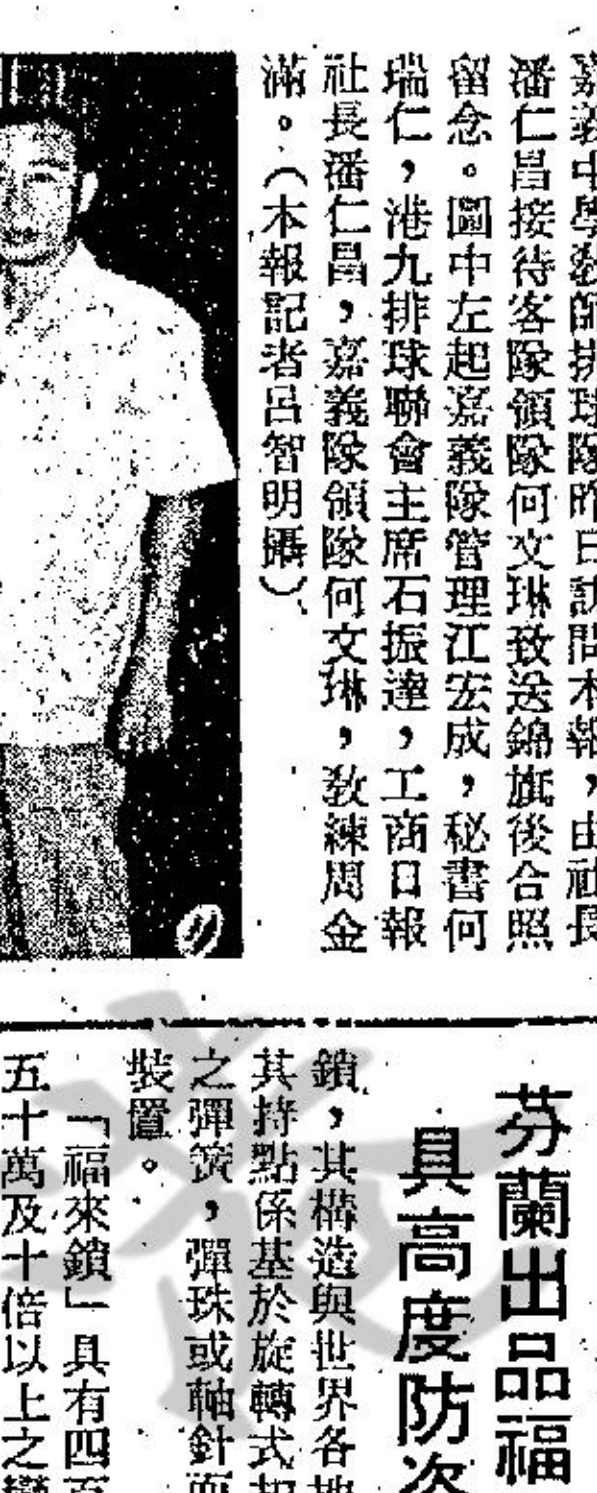 嘉義中學教師排球隊昨日訪問本報，由社長
潘仁昌接待客隊領隊何文琳致送錦旗後合照
留念。圖中左起嘉義隊管理江宏成，秘書何
瑞仁，港九排球聯會主席石振達，工商日報
社長潘仁昌，嘉義隊領隊何文琳，敎練周金
滿。（本報記者呂智明攝）
芬蘭出品福
具高度防次
鎖，其構造與世界各地
其持點係基於旋轉式
之彈簧，彈珠或軸針而
裝置。
「福來鎖」具有四百
五十萬及十倍以上之變